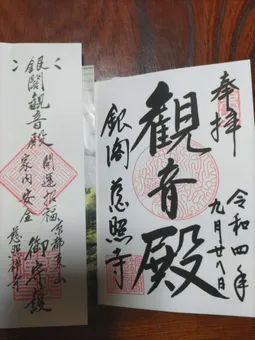 奉拝
観音殿
銀閣 慈照寺
令和四年
九月廿八日
銀閣観音殿
開運招福
家内安全
御守護
京都東山
慈照禅寺